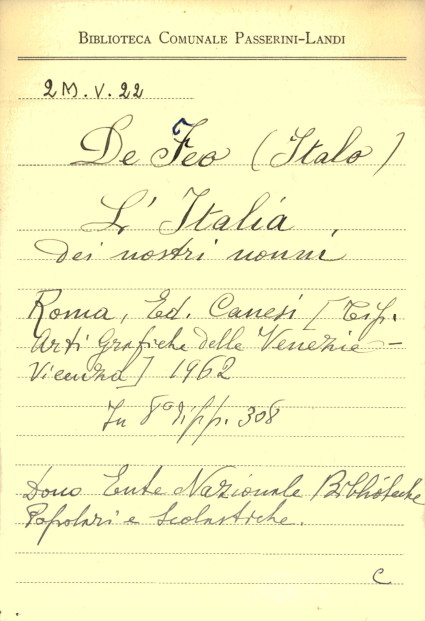 BIBLIOTECA COMUNALE PASSERINI-LANDI
2M.V.22
De Feo (Italo)
L'Italia
dei nostri nonni
Roma, Ed. Canesi [Tip.
Arti Grafiche delle Venezie -
Vicenza] 1962
In 8° di pp. 308
Dono Ente Nazionale Biblioteche
Popolari e Scolastiche.
C